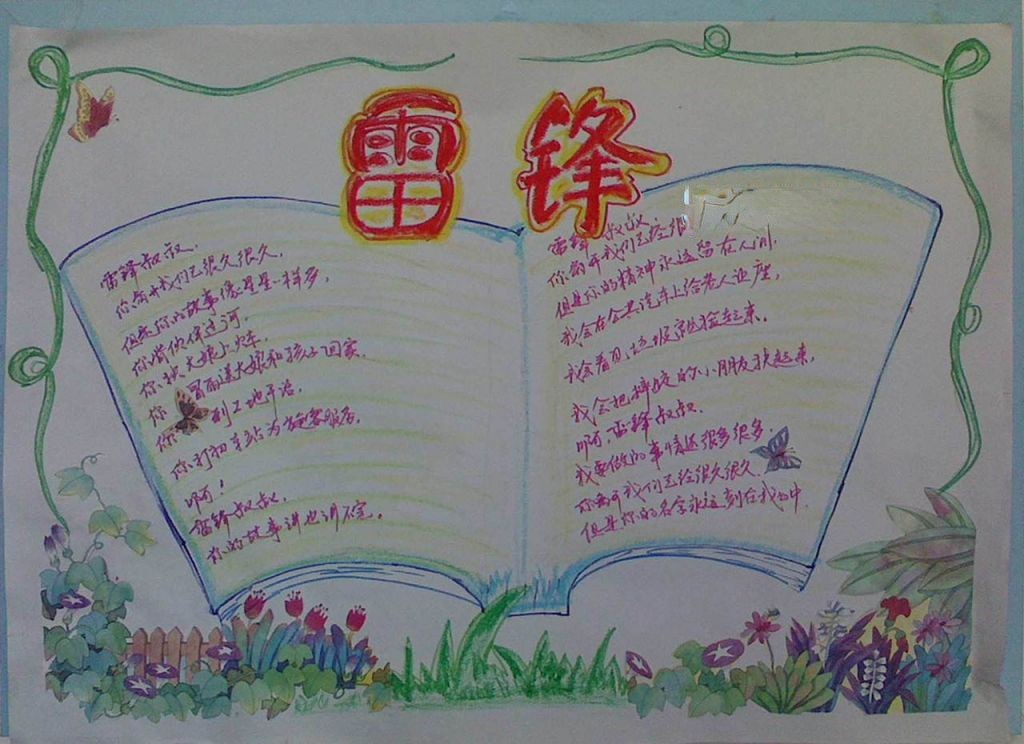 雷锋
雷锋叔叔.
你离开我们已很久很久,
但是你的故事像星星一样多,
你背伙伴过河.
你扶大娘上火车.
你冒雨送大娘和孩子回家.
你到工地干活.
你到初车站为旅客服务.
啊!
雷锋叔叔.
你的故事讲也讲不完。
雷锋叔叔.
你离开我们已经很
但是你的精神永远留在人间,
我会在公共汽车上给老人让座,
我会看见垃圾就捡起来.
我会把摔跤的小朋友扶起来,
啊,雷锋叔叔.
我要做的事情还很多很多.
你离开我们已经很久很久.
但是你的名字永远刻在我心中.